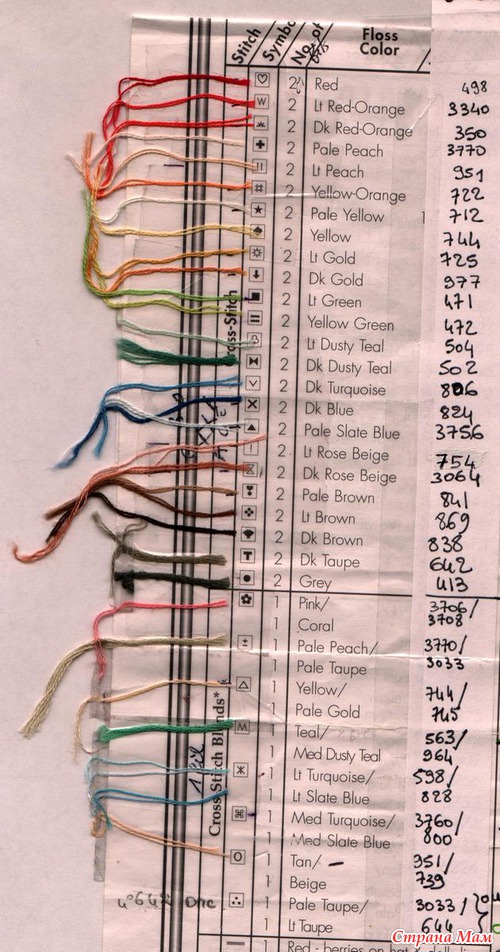 Stitch Symbol No. of Floss Color
2 Red 498
W 2 Lt Red-Orange 3340
2 Dk Red-Orange 350
2 Pale Peach 3770
2 Lt Peach 951
# 2 Yellow-Orange 722
★ 2 Pale Yellow 712
2 Yellow 744
2 Lt Gold 725
2 Dk Gold 977
2 Lt Green 471
2 Yellow Green 472
2 Lt Dusty Teal 504
2 Dk Dusty Teal 502
2 Dk Turquoise 806
2 Dk Blue 824
2 Pale Slate Blue 3756
2 Lt Rose Beige 754
2 Dk Rose Beige 3064
2 Pale Brown 841
2 Lt Brown 869
2 Dk Brown 838
T 2 Dk Taupe 642
2 Grey 413
1 Pink/ 3706/
1 Coral 3708
1 Pale Peach/ 3770/
1 Pale Taupe 3033
1 Yellow/ 744/
1 Pale Gold 745
M 1 Teal/ 563/
1 Med Dusty Teal 964
1 Lt Turquoise/ 598/
1 Lt Slate Blue 828
1 Med Turquoise/ 3760/
1 Med Slate Blue 800
O 1 Tan/ 951/
1 Beige 739
1 Pale Taupe/ 3033/
1 Lt Taupe 644
Cross-Stitch
Cross Stitch Blends*
1 fil
Страна Мам